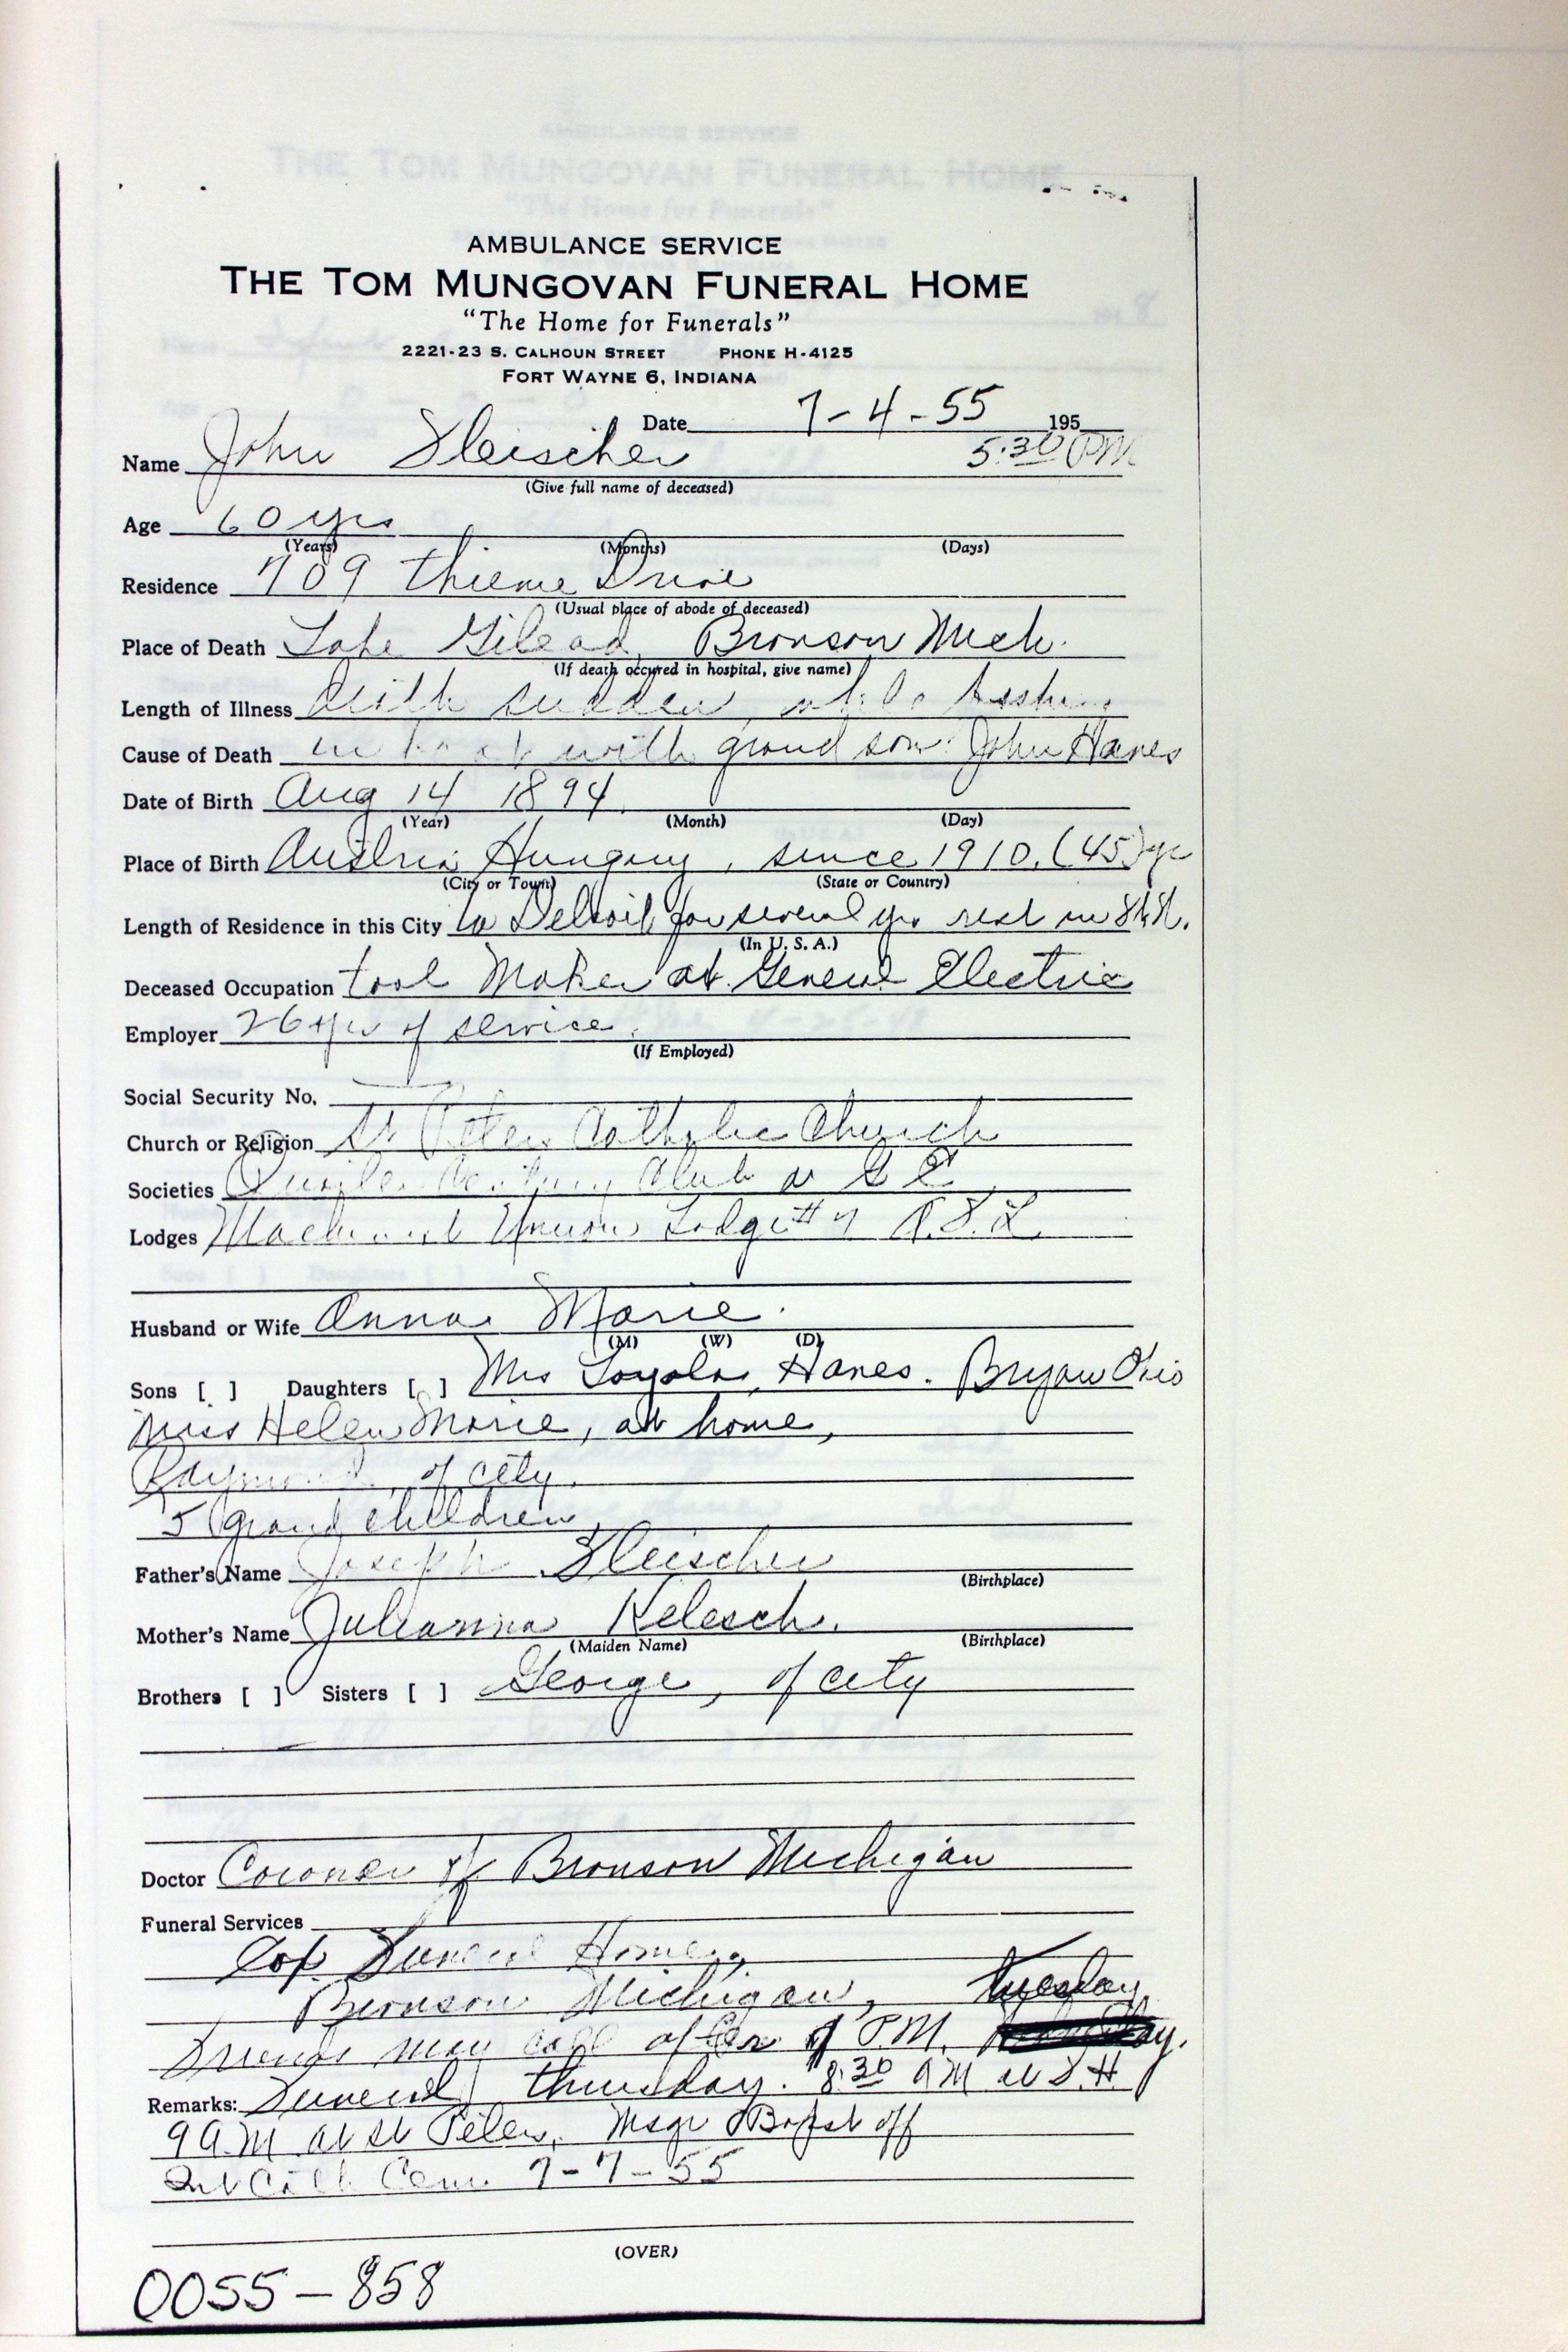 AMBULANCE SERVICE
THE TOM MUNGOVAN FUNERAL HOME
"The Home for Funerals"
2221-23 S. CALHOUN STREET PHONE H-4125
FORT WAYNE 6, INDIANA
Date 7-4-55 195
Name John Fleischer 5:30 PM
(Give full name of deceased)
Age 60 yrs
(Years) (Months) (Days)
Residence 709 Thieme Drive
(Usual place of abode of deceased)
Place of Death Lake Gilead, Bronson Mich.
(If death occured in hospital, give name)
Length of Illness death sudden, while
Cause of Death in boat with grandson John Hanes
Date of Birth Aug 14 1894
(Year) (Month) (Day)
Place of Birth Austria Hungary, since 1910. (45) yr
(City or Town) (State or Country)
Length of Residence in this City to Detroit for several yrs rest in
(In U. S. A.)
Deceased Occupation tool Maker at General Electric
Employer 26 yrs of service.
(If Employed)
Social Security No.
Church or Religion St Peter Catholic Church
Societies Quarter Century Club at G E
Lodges Machinist Union Lodge # 7
Husband or Wife Anna Marie.
(M) (W) (D)
Sons [ ] Daughters [ ] Mrs Loyola Hanes. Bryan Ohio
Miss Helen Marie, at home,
Raymond, of city.
5 grand children
Father's Name Joseph Fleischer
(Birthplace)
Mother's Name Julianna Kelesch.
(Maiden Name) (Birthplace)
Brothers [ ] Sisters [ ] George, of city
Doctor Coroner of Bronson Michigan
Funeral Services
Funeral Home,
Bronson Michigan, Tuesday
Friends may call after 7 P.M.
Remarks: Funeral Thursday. 8:30 AM at F.H.
9 A.M at St Peters, Msgr off
Cath Cem. 7-7-55
(OVER)
0055-858